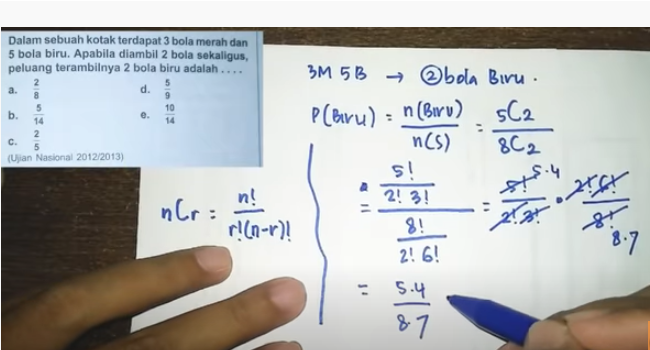 Dalam sebuah kotak terdapat 3 bola merah dan
5 bola biru. Apabila diambil 2 bola sekaligus,
peluang terambilnya 2 bola biru adalah ....
a. 2/8
b. 5/14
c. 2/5
d. 5/9
e. 10/14
(Ujian Nasional 2012/2013)
3M 5B → ② bola Biru.
P(Biru) = n(Biru)/n(S) = 5C2/8C2
nCr = n!/r!(n-r)!
= 5!/2! 3! / 8!/2! 6! = 5!/2! 3! · 2! 6!/8!
5.4
8.7
= 5.4/8.7